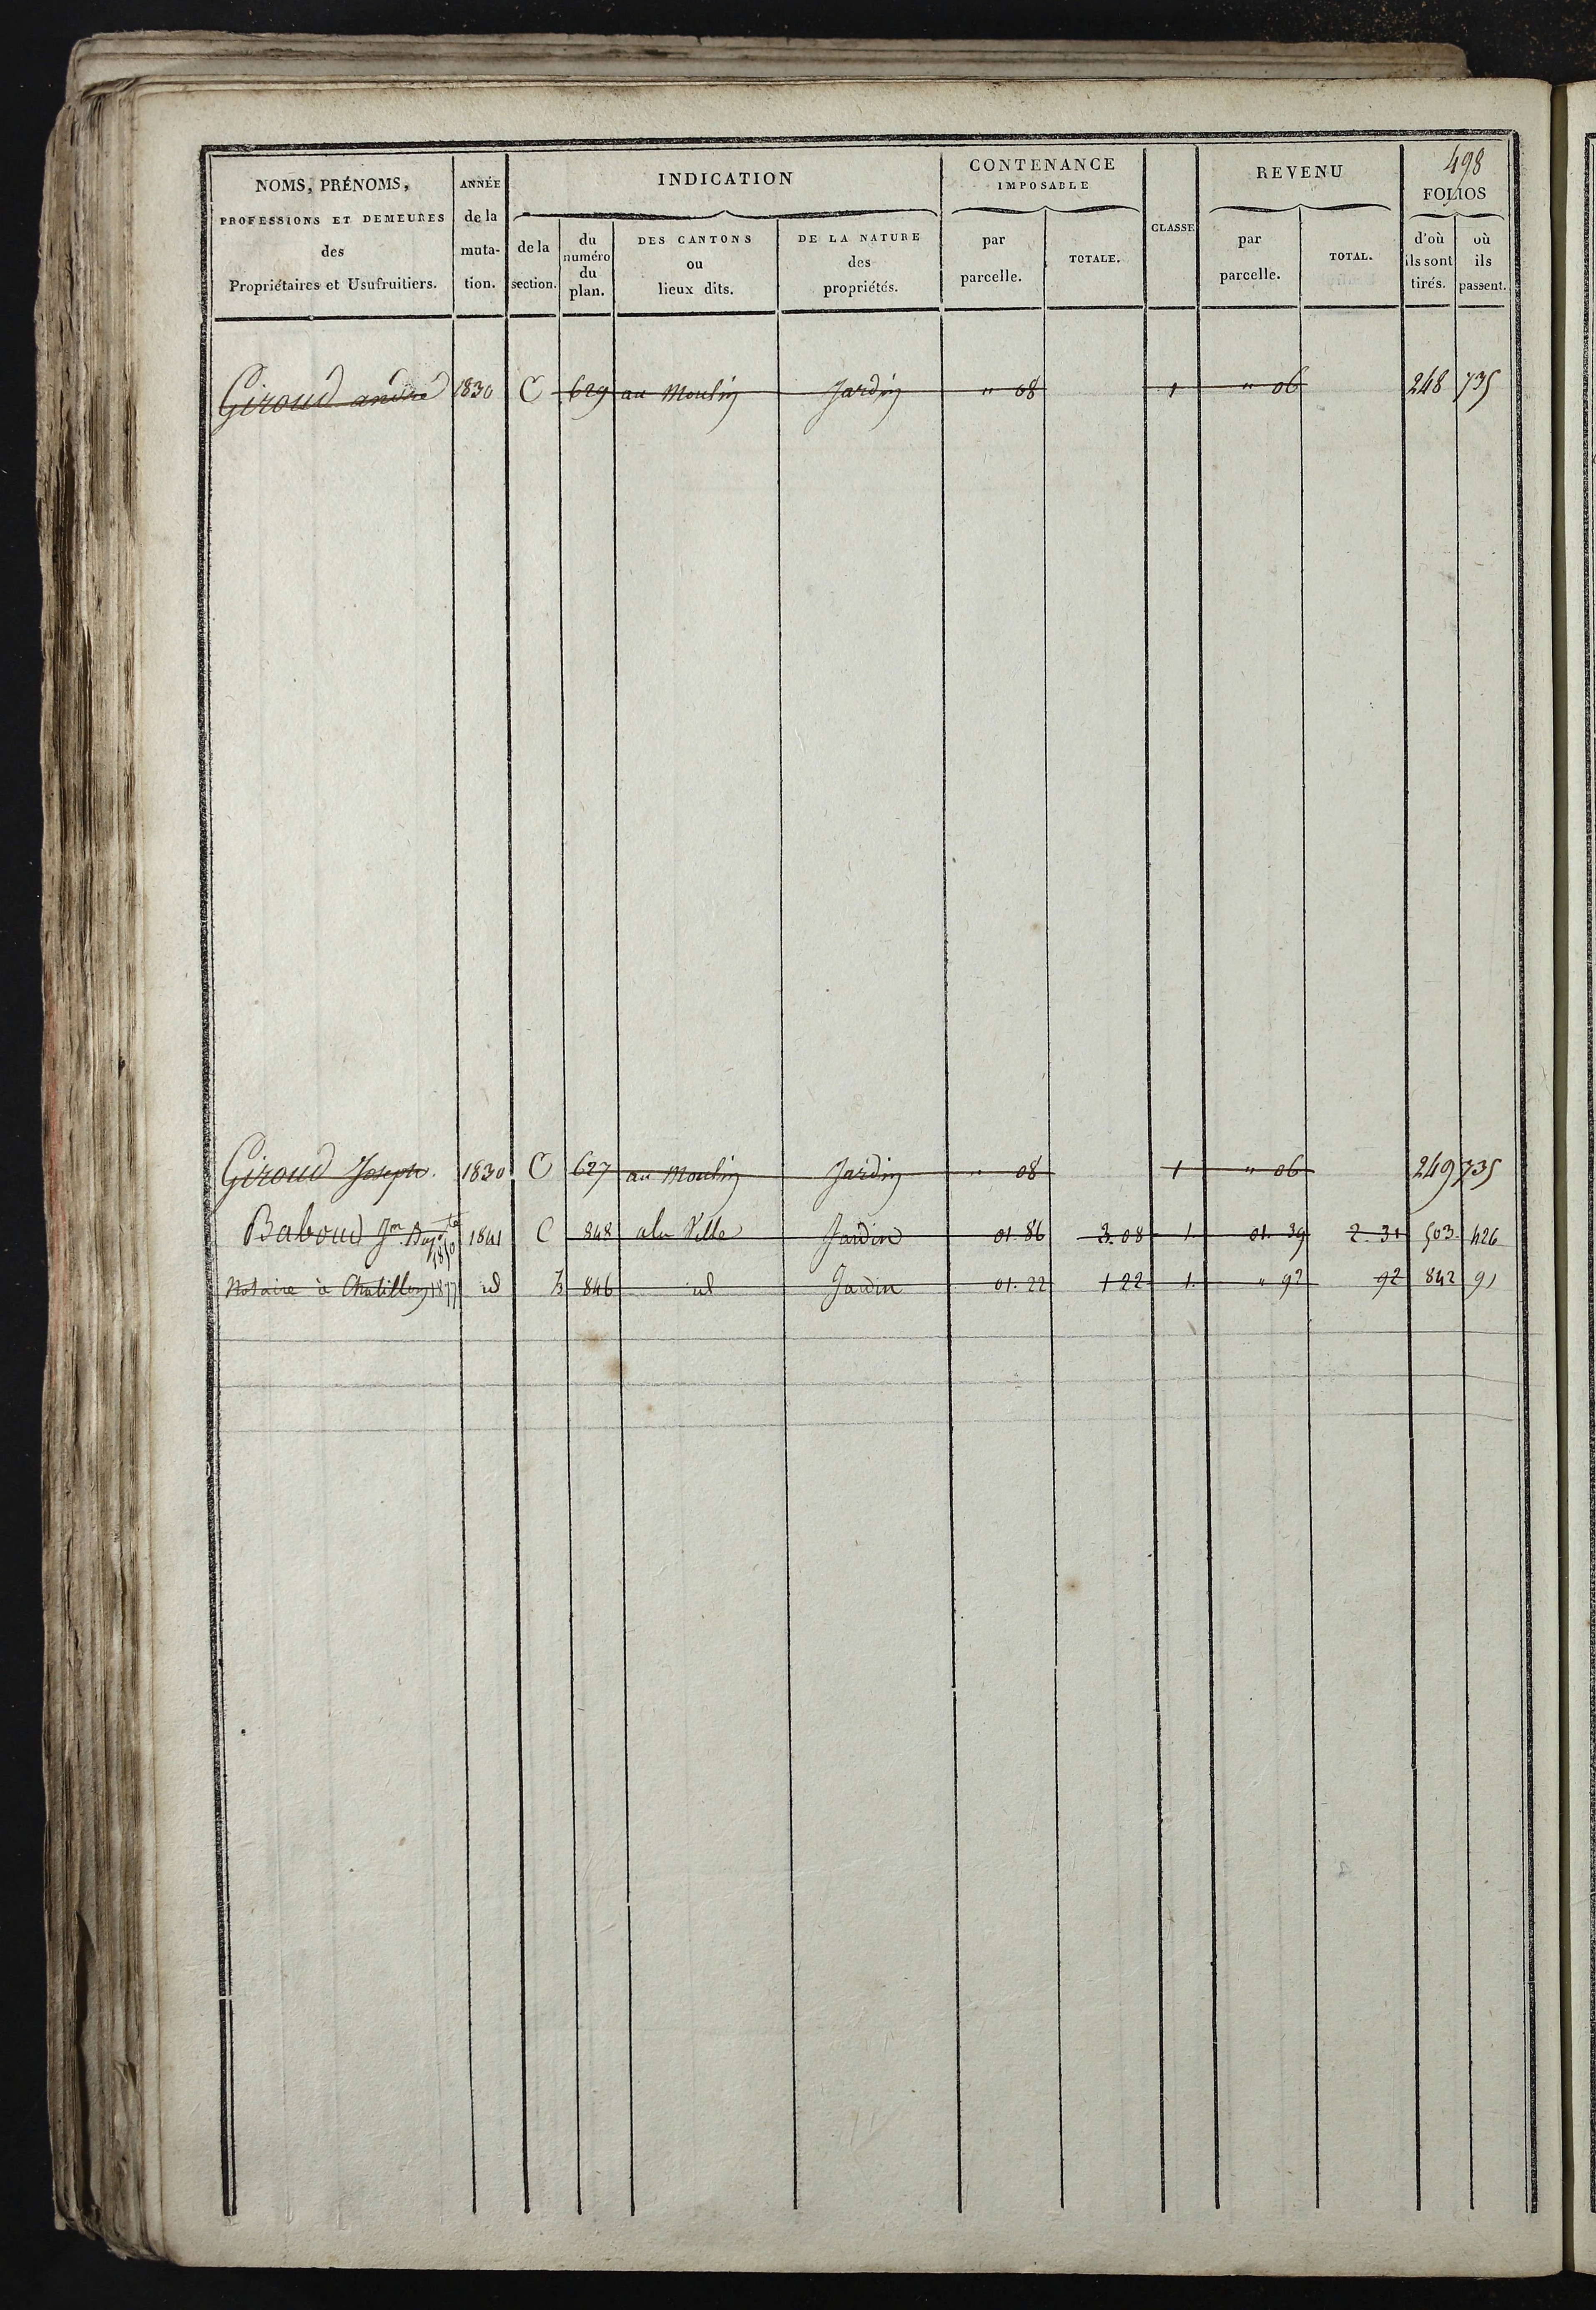 498
NOMS, PRÉNOMS, PROFESSIONS ET DEMEURES des Propriétaires et Usufruitiers.
ANNÉE de la muta- tion.
INDICATION
de la section.
du numéro du plan.
DES CANTONS ou lieux dits.
DE LA NATURE des propriétés.
CONTENANCE IMPOSABLE
par parcelle.
TOTALE.
CLASSE
REVENU
par parcelle.
TOTAL.
FOLIOS
d'où ils sont tirés.
où ils passent.
Giroud andré 1830 C 629 au Moulin Jardin " 08 1 " 06 248 735
Giroud Joseph. 1830 C 627 au Moulin Jardin " 08 1 " 06 249 735
Baboud Jn Bapte 1841 C 848 ala Ville Jardin 01.86 3.08 1. 01.39 2.31 503. 426
1850
Notaire à Chatillon 1877 id 846 id Jardin 01.22 1 22 1. " 92 92 842 91